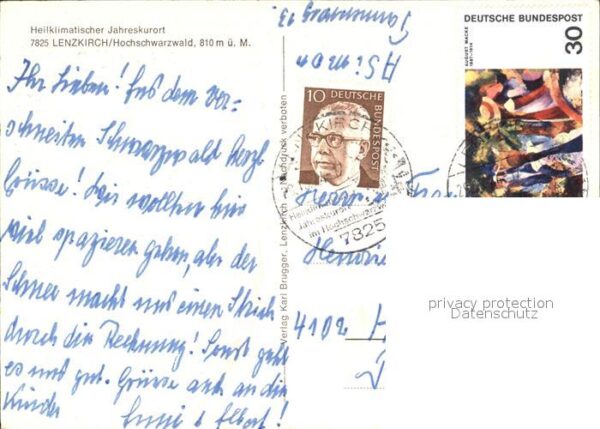 Heilklimatischer Jahreskurort
7825 LENZKIRCH/Hochschwarzwald, 810 m ü. M.
Ihr Lieben! Aus dem ver-
schneiten Schwarzwald herzl.
Grüsse! Wir wollten hier
viel spazieren gehen, aber der
Schnee macht uns einen Strich
durch die Rechnung! Sonst geht
es uns gut. Grüsse auch an die
Kinder
Albert!
Verlag Karl Brugger, Lenzkirch — Nachdruck verboten
10
DEUTSCHE
BUNDESPOST
DEUTSCHE BUNDESPOST
30
AUGUST MACKE
1887-1914
LENZKIRCH
Heilklim.
Jahreskurort
im Hochschwarzwald
7825
4102
privacy protection
Datenschutz